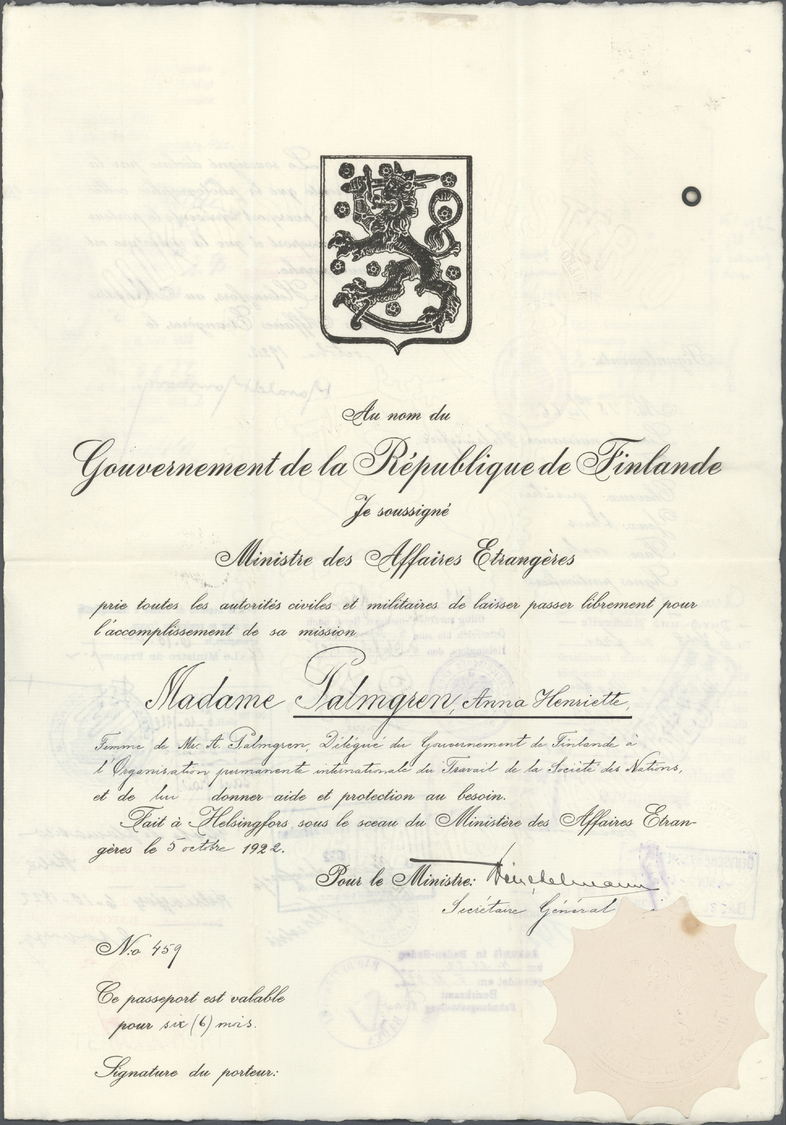 Au nom du
Gouvernement de la République de Finlande
Je soussigné
Ministre des Affaires Etrangères
prie toutes les autorités civiles et militaires de laisser passer librement pour
l'accomplissement de sa mission
Madame Palmgren, Anna Henriette,
Femme de Mr. A. Palmgren, Délégué du Gouvernement de Finlande à
l'Organisation permanente internationale du Travail de la Société des Nations,
et de lui donner aide et protection au besoin.
Fait à Helsingfors sous le sceau du Ministère des Affaires Etran-
gères le 5 octbre 1922.
Pour le Ministre:
Secrétaire Général
No 459
Ce passeport est valable
pour six (6) mois.
Signature du porteur: